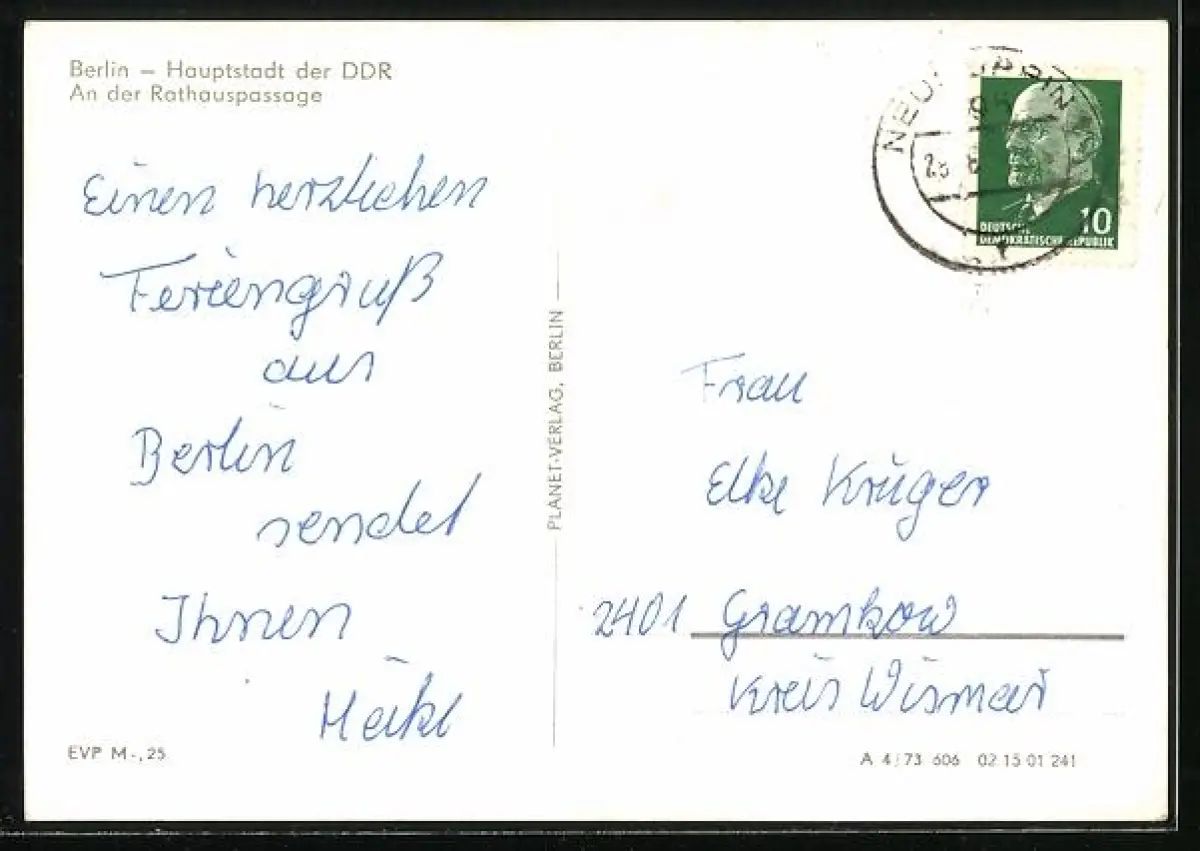 Berlin – Hauptstadt der DDR
An der Rathauspassage
Einen herzlichen
Feriengruß
aus
Berlin
sendet
Ihnen
EVP M -,25
PLANET-VERLAG, BERLIN
DEUTSCHE
DEMOKRATISCHE REPUBLIK
10
Frau
Elke Krüger
2401 Gramkow
Kreis Wismar
A 4/73 606 02 15 01 241